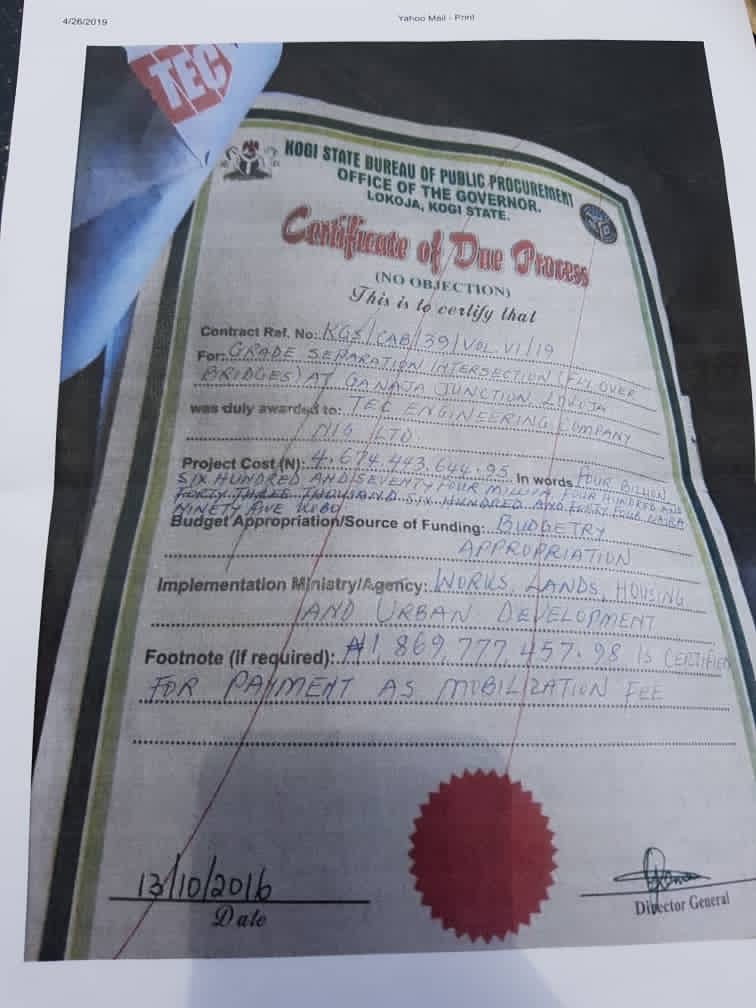 4/26/2019
Yahoo Mail - Print
TEC
KOGI STATE BUREAU OF PUBLIC PROCUREMENT
OFFICE OF THE GOVERNOR.
LOKOJA, KOGI STATE.
Certificate of Due Process
(NO OBJECTION)
This is to certify that
Contract Ref. No: KGS/CAB/39/VOL.VI/19
For: GRADE SEPARATION INTERSECTION (FLY OVER
BRIDGES) AT GANAJA JUNCTION LOKOJA
was duly awarded to: TEC ENGINEERING COMPANY
NIG LTD
Project Cost (N): 4,674,443,644.95 In words FOUR BILLION
SIX HUNDRED AND SEVENTY FOUR MILLION FOUR HUNDRED AND
FORTY THREE THOUSAND SIX HUNDRED AND FORTY FOUR NAIRA
NINETY FIVE KOBO
Budget Appropriation/Source of Funding: BUDGETRY
APPROPRIATION
Implementation Ministry/Agency: WORKS, LANDS, HOUSING
AND URBAN DEVELOPMENT
Footnote (if required): ₦1,869,777,457.98 IS CERTIFIED
FOR PAYMENT AS MOBILIZATION FEE
13/10/2016
Date
Director General